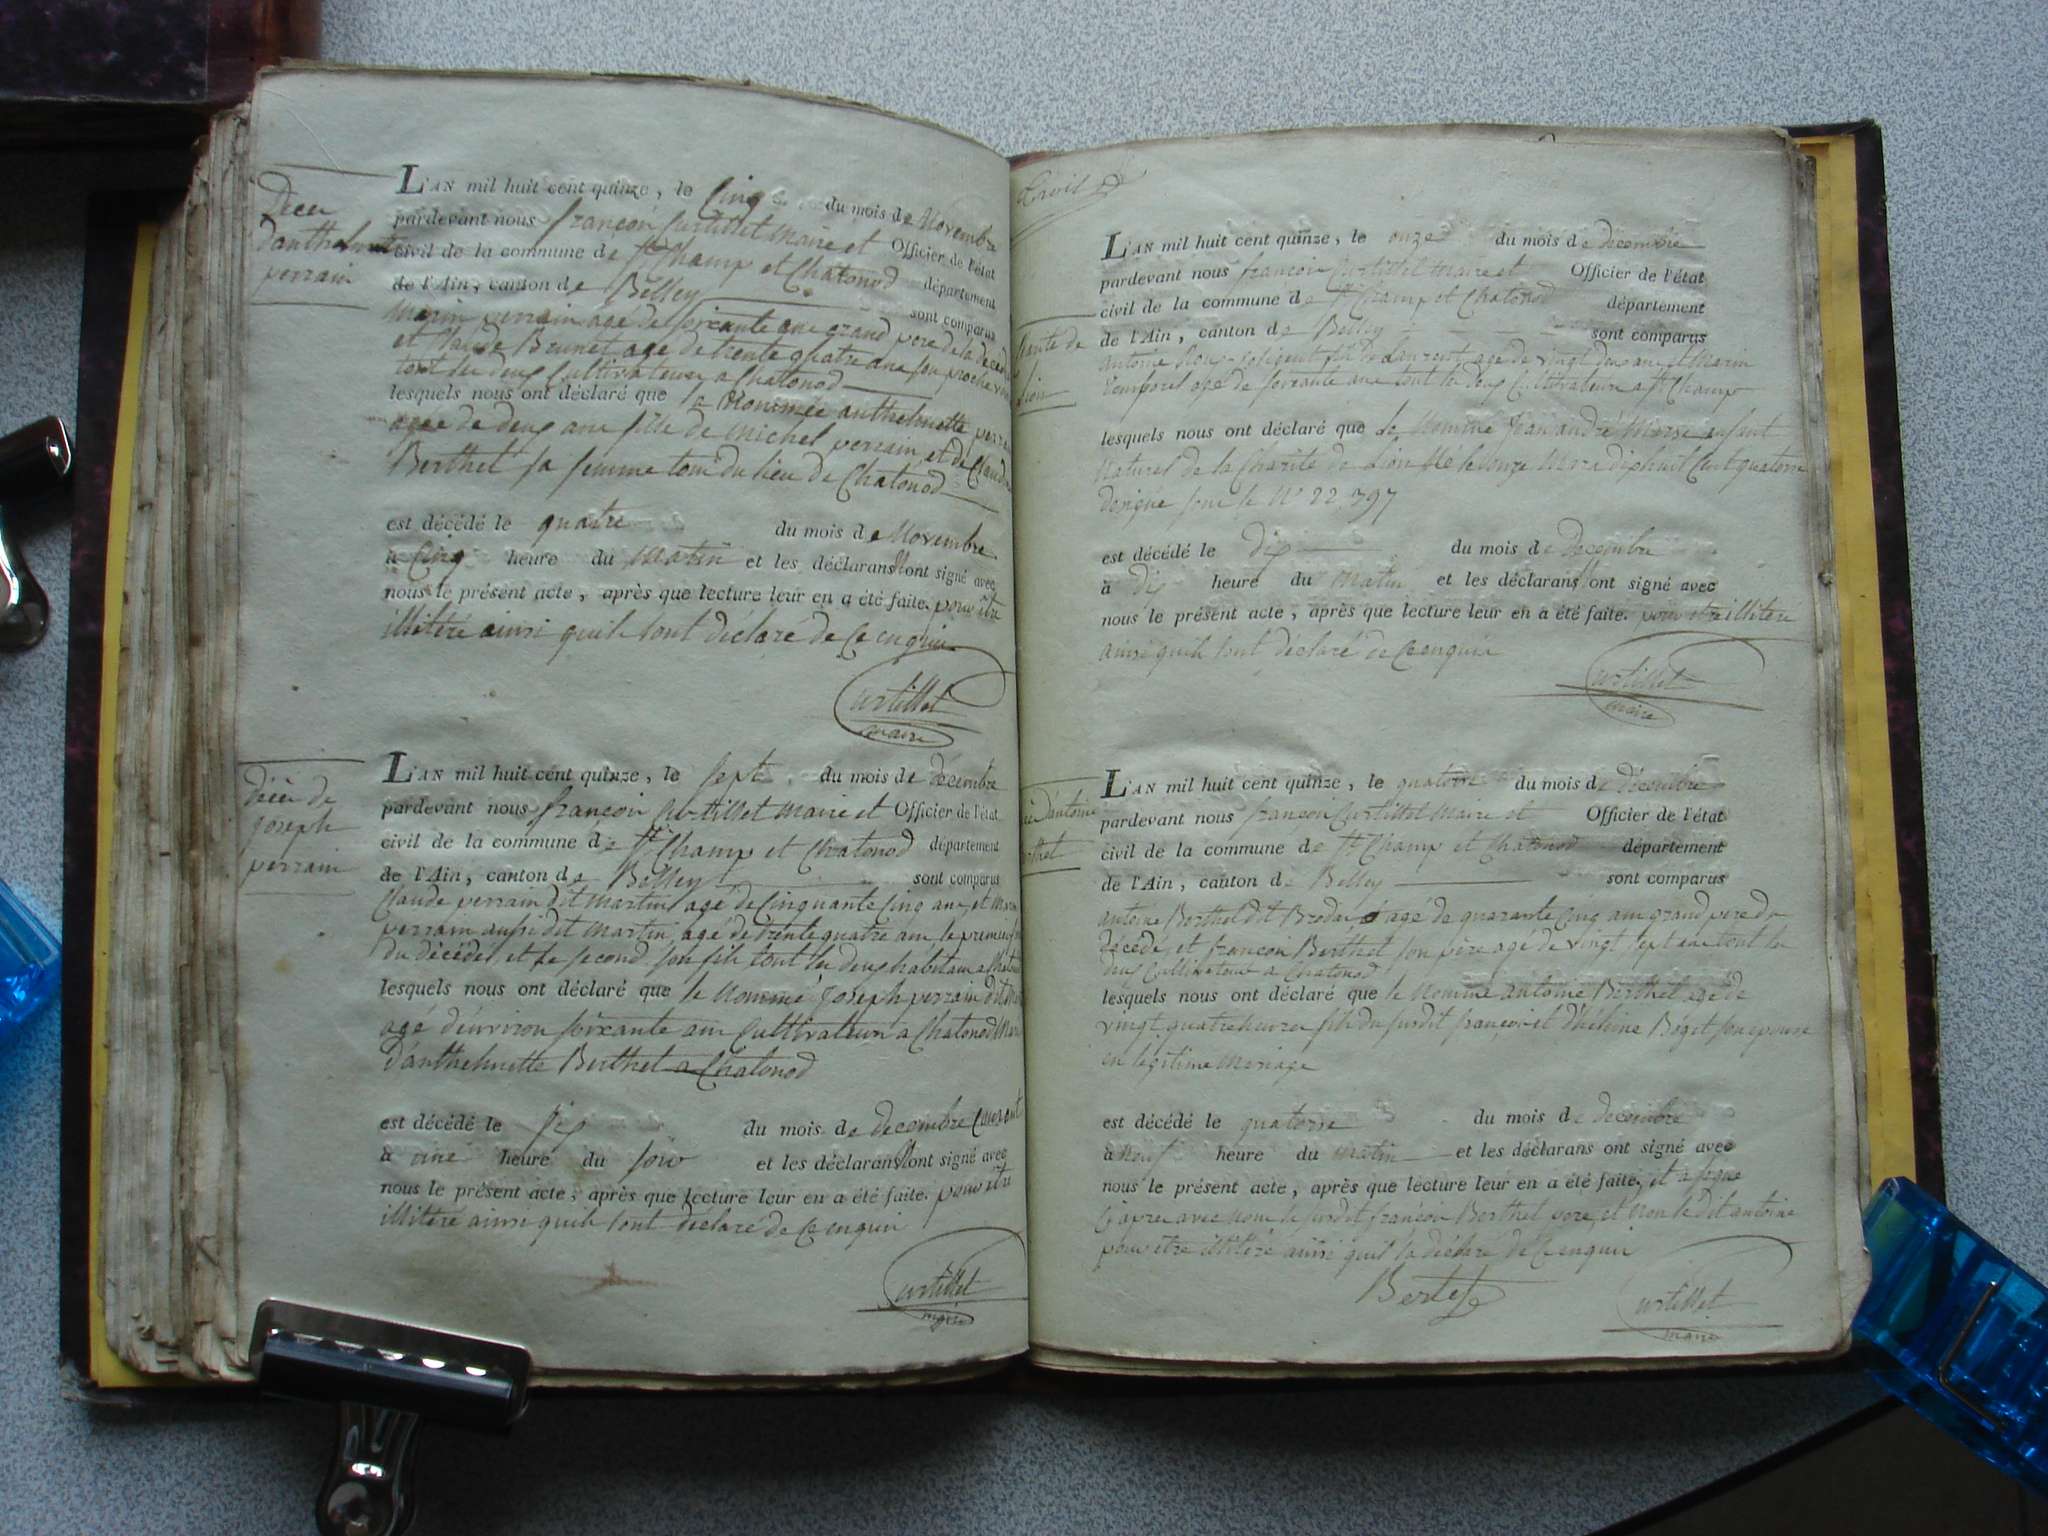 Décès
d'anthelmette
perrain
L'AN mil huit cent quinze, le Cinq du mois de Novembre
pardevant nous françois Curtillet Maire et Officier de l'état
civil de la commune de St Champ et Chatonod département
de l'Ain, canton de Belley sont comparus
Marin perrain agé de soixante ans grand pere de la décédée
et Claude Brunet agé de trente quatre ans son proche voisin
tout les deux Cultivateurs a Chatonod
lesquels nous ont déclaré que la Nommée anthelmette perrain
agée de deux ans fille de Michel perrain et de Claudine
Berthet sa femme tous du lieu de Chatonod
est décédé le quatre du mois de Novembre
à Cinq heure du Matin et les déclarans ont signé avec
nous le présent acte, après que lecture leur en a été faite. pour être
illitéré ainsi quils l'ont déclaré de Ce enquis
Curtillet
maire
décès de
joseph
perrain
L'AN mil huit cent quinze, le sept du mois de décembre
pardevant nous françois Curtillet Maire et Officier de l'état
civil de la commune de St Champ et Chatonod département
de l'Ain, canton de Belley sont comparus
Claude perrain dit Martin agé de Cinquante Cinq ans, et
perrain aussi dit Martin agé de trente quatre ans, le premier
du décédé, et le second son fils tout les deux habitans a
lesquels nous ont déclaré que le Nommé joseph perrain dit
agé d'environ soixante ans Cultivateur a Chatonod
d'anthelmette Berthet a Chatonod
est décédé le six du mois de decembre Courant
à une heure du soir et les déclarans ont signé avec
nous le présent acte, après que lecture leur en a été faite. pour être
illitéré ainsi quils l'ont déclaré de Ce enquis
Curtillet
maire
Charité de
Lion
L'AN mil huit cent quinze, le onze du mois de decembre
pardevant nous françois Curtillet Maire et Officier de l'état
civil de la commune de St Champ et Chatonod département
de l'Ain, canton de Belley sont comparus
antoine fils de Laurent, agé de vingt deux ans et Marin
agé de soixante ans tout les deux Cultivateurs a St Champ
lesquels nous ont déclaré que le Nommé jean andré enfant
Naturel de la Charité de Lion Né le onze Mars dix huit Cent quatorze
désigné sous le No 22,797
est décédé le dix du mois de decembre
à dix heure du Matin et les déclarans ont signé avec
nous le présent acte, après que lecture leur en a été faite. pour être illitéré
ainsi quils l'ont déclaré de Ce enquis
Curtillet
maire
d'antoine
L'AN mil huit cent quinze, le quatorze du mois de décembre
pardevant nous françois Curtillet Maire et Officier de l'état
civil de la commune de St Champ et Chatonod département
de l'Ain, canton de Belley sont comparus
antoine Berthet dit agé de quarante Cinq ans grand pere du
décédé, et françois Berthet son père agé de vingt sept ans tout les
deux Cultivateur a Chatonod
lesquels nous ont déclaré que le Nommé antoine Berthet agé de
vingt quatre heures fils du susdit françois et d'hélène Béget son épouse
en légitime Mariage
est décédé le quatorze du mois de decembre
à Neuf heure du Matin et les déclarans ont signé avec
nous le présent acte, après que lecture leur en a été faite, et a signé
Cy apres avec nous le susdit françois Berthet pere, et non le dit antoine
pour être illitéré ainsi quil l'a déclaré de Ce enquis
Curtillet
maire